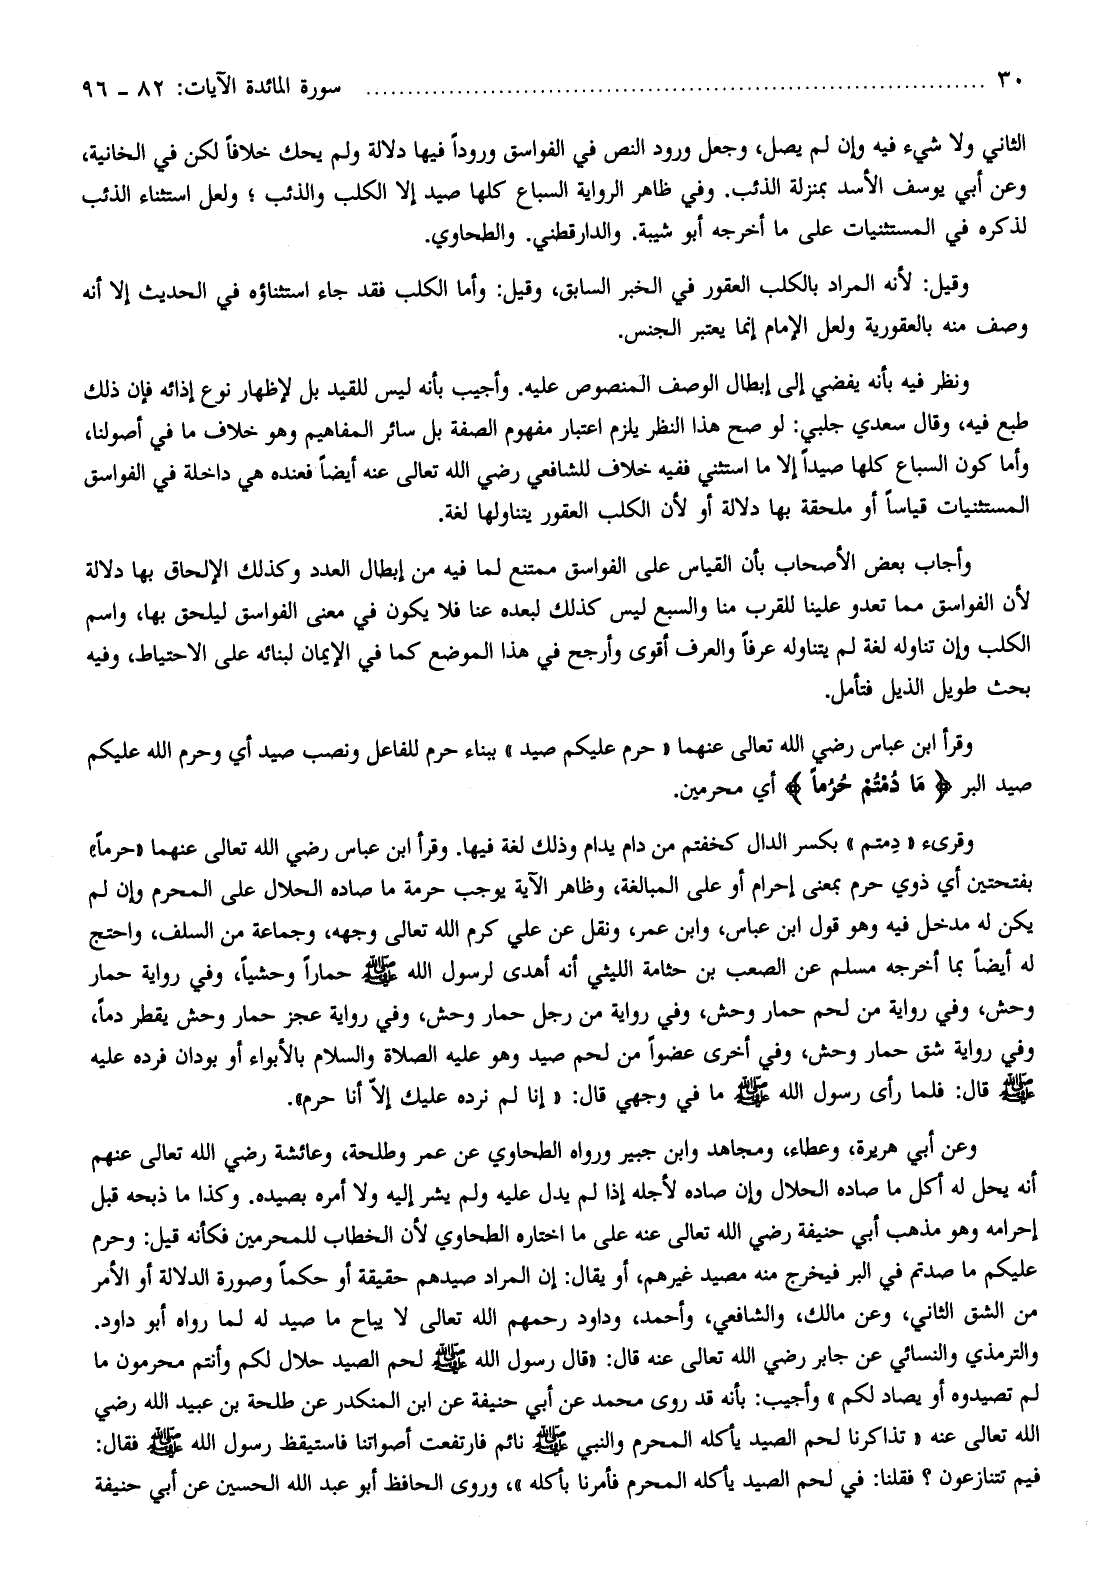 ٣٠ ........................................ سورة المائدة الآيات: ٨٢ ـ ٩٦
الثاني ولا شيء فيه وإن لم يصل، وجعل ورود النص في الفواسق وروداً فيها دلالة ولم يحك خلافاً لكن في الخانية،
وعن أبي يوسف الأسد بمنزلة الذئب. وفي ظاهر الرواية السباع كلها صيد إلا الكلب والذئب ؛ ولعل استثناء الذئب
لذكره في المستثنيات على ما أخرجه أبو شيبة. والدارقطني. والطحاوي.
وقيل: لأنه المراد بالكلب العقور في الخبر السابق، وقيل: وأما الكلب فقد جاء استثناؤه في الحديث إلا أنه
وصف منه بالعقورية ولعل الإمام إنما يعتبر الجنس.
ونظر فيه بأنه يفضي إلى إبطال الوصف المنصوص عليه. وأجيب بأنه ليس للقيد بل لإظهار نوع إذائه فإن ذلك
طبع فيه، وقال سعدي جلبي: لو صح هذا النظر يلزم اعتبار مفهوم الصفة بل سائر المفاهيم وهو خلاف ما في أصولنا،
وأما كون السباع كلها صيداً إلا ما استثني ففيه خلاف للشافعي رضي الله تعالى عنه أيضاً فعنده هي داخلة في الفواسق
المستثنيات قياساً أو ملحقة بها دلالة أو لأن الكلب العقور يتناولها لغة.
وأجاب بعض الأصحاب بأن القياس على الفواسق ممتنع لما فيه من إبطال العدد وكذلك الإلحاق بها دلالة
لأن الفواسق مما تعدو علينا للقرب منا والسبع ليس كذلك لبعده عنا فلا يكون في معنى الفواسق ليلحق بها، واسم
الكلب وإن تناوله لغة لم يتناوله عرفاً والعرف أقوى وأرجح في هذا الموضع كما في الإيمان لبنائه على الاحتياط، وفيه
بحث طويل الذيل فتأمل.
وقرأ ابن عباس رضي الله تعالى عنهما « حرم عليكم صيد » ببناء حرم للفاعل ونصب صيد أي وحرم الله عليكم
صيد البر ﴿ مَا دُمْتُمْ حُرُماً ﴾ أي محرمين.
وقرىء « دِمتم » بكسر الدال كخفتم من دام يدام وذلك لغة فيها. وقرأ ابن عباس رضي الله تعالى عنهما «حرماً»
بفتحتين أي ذوي حرم بمعنى إحرام أو على المبالغة، وظاهر الآية يوجب حرمة ما صاده الحلال على المحرم وإن لم
يكن له مدخل فيه وهو قول ابن عباس، وابن عمر، ونقل عن علي كرم الله تعالى وجهه، وجماعة من السلف، واحتج
له أيضاً بما أخرجه مسلم عن الصعب بن حثامة الليثي أنه أهدى لرسول الله ﷺ حماراً وحشياً، وفي رواية حمار
وحش، وفي رواية من لحم حمار وحش، وفي رواية من رجل حمار وحش، وفي رواية عجز حمار وحش يقطر دماً،
وفي رواية شق حمار وحش، وفي أخرى عضواً من لحم صيد وهو عليه الصلاة والسلام بالأبواء أو بودان فرده عليه
ﷺ قال: فلما رأى رسول الله ﷺ ما في وجهي قال: « إنا لم نرده عليك إلاّ أنا حرم».
وعن أبي هريرة، وعطاء، ومجاهد وابن جبير ورواه الطحاوي عن عمر وطلحة، وعائشة رضي الله تعالى عنهم
أنه يحل له أكل ما صاده الحلال وإن صاده لأجله إذا لم يدل عليه ولم يشر إليه ولا أمره بصيده. وكذا ما ذبحه قبل
إحرامه وهو مذهب أبي حنيفة رضي الله تعالى عنه على ما اختاره الطحاوي لأن الخطاب للمحرمين فكأنه قيل: وحرم
عليكم ما صدتم في البر فيخرج منه مصيد غيرهم، أو يقال: إن المراد صيدهم حقيقة أو حكماً وصورة الدلالة أو الأمر
من الشق الثاني، وعن مالك، والشافعي، وأحمد، وداود رحمهم الله تعالى لا يباح ما صيد له لما رواه أبو داود.
والترمذي والنسائي عن جابر رضي الله تعالى عنه قال: «قال رسول الله ﷺ لحم الصيد حلال لكم وأنتم محرمون ما
لم تصيدوه أو يصاد لكم » وأجيب: بأنه قد روى محمد عن أبي حنيفة عن ابن المنكدر عن طلحة بن عبيد الله رضي
الله تعالى عنه « تذاكرنا لحم الصيد يأكله المحرم والنبي ﷺ نائم فارتفعت أصواتنا فاستيقظ رسول الله ﷺ فقال:
فيم تتنازعون ؟ فقلنا: في لحم الصيد يأكله المحرم فأمرنا بأكله »، وروى الحافظ أبو عبد الله الحسين عن أبي حنيفة